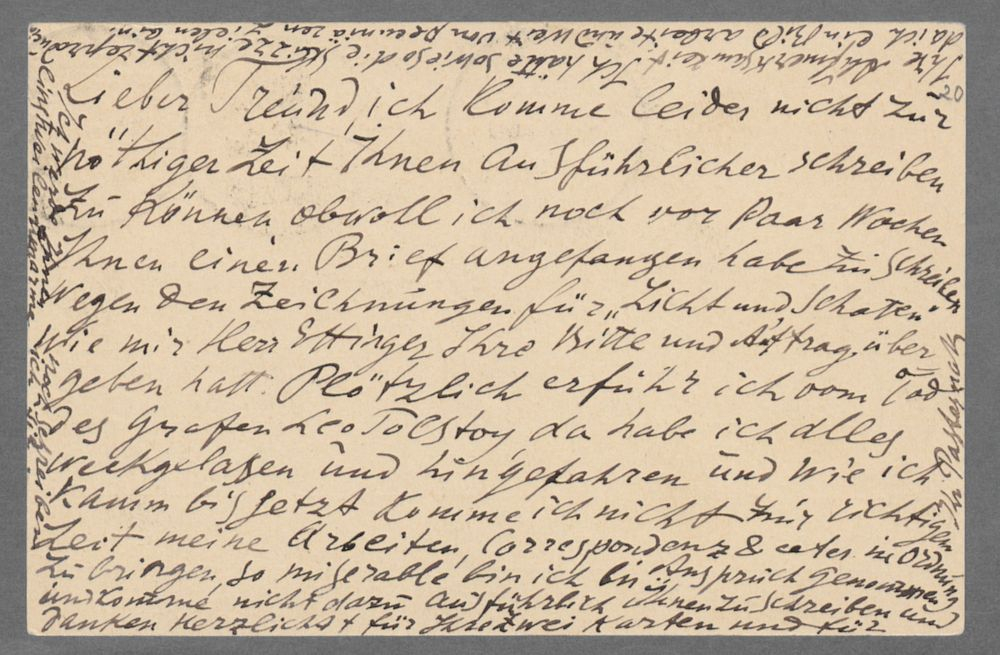 Lieber Freund, ich komme leider nicht zur
nöthiger Zeit Ihnen ausführlicher schreiben
zu können obwoll ich noch vor Paar Wochen
Ihnen einen Brief angefangen habe zu schreiben
wegen den Zeichnungen für „Licht und Schaten"
wie mir Herr Ettinger Ihre Bitte und Auftrag über
geben hatt. Plötzlich erfuhr ich vom Tod
des Grafen Leo Tolstoy, da habe ich alles
weekgelassen und hingefahren und wie ich
kamm bis jetzt komme ich nicht zur richtigen
Zeit meine Arbeiten, Correspondenz & ceter. in Ordnung
zu bringen, so miserable bin ich in Anspruch genommen
und komme nicht dazu ausführlich Ihnen zu schreiben und
danken herzlichst für Ihre zwei Karten und für
Ihre Aufmerksamkeit. Ich hätte sowieso die Skizze nicht
da ich ein Bild arbeite und wert von pecuniären Zielen
Ich werde Ihnen noch schreiben
einstweilen umarme ich Sie
Ihr Pasternak
20